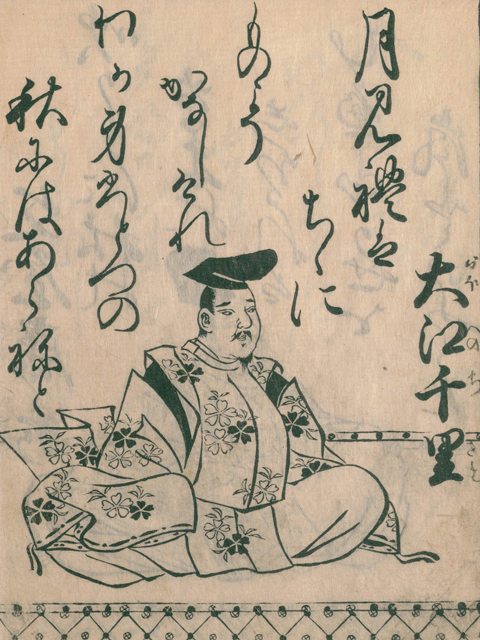 大江千里
月見禮は
ちゝに
ものこそ
かなしけれ
わか身ひとつの
秋にはあらねと